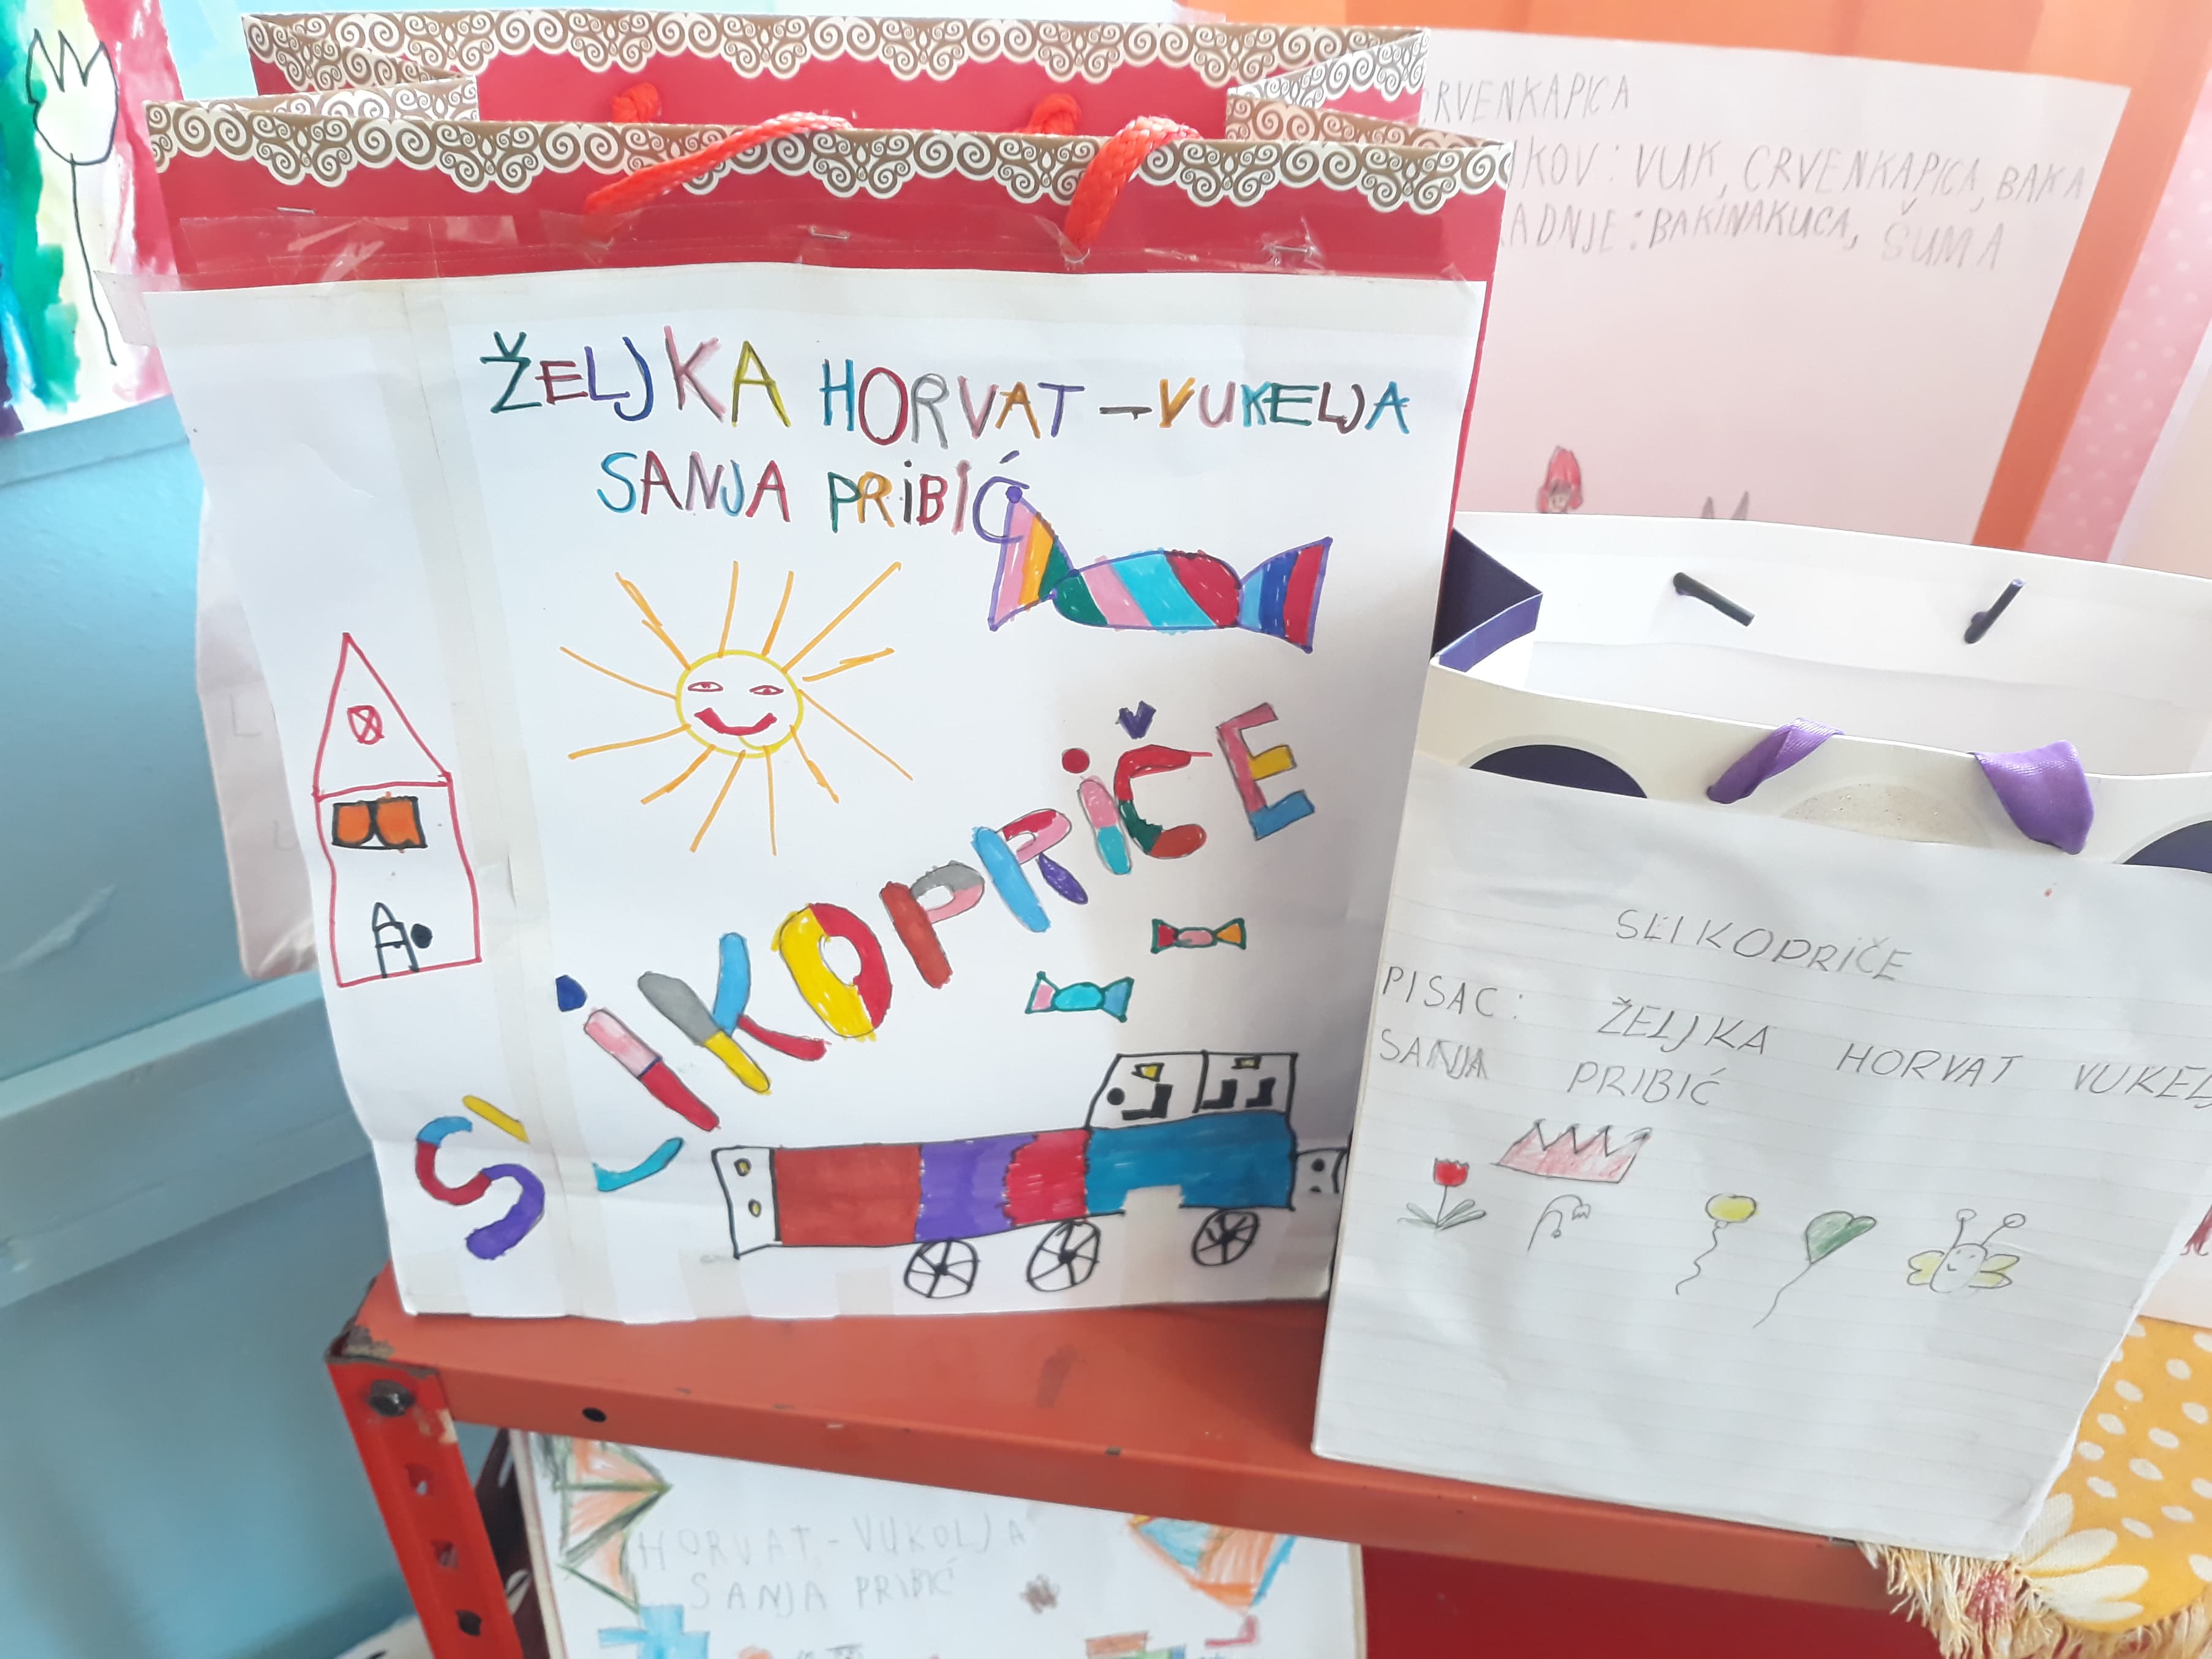 ŽELJKA HORVAT-VUKELJA
SANJA PRIBIĆ
SLIKOPRIČE
RVENKAPICA
KOV: VUK, CRVENKAPICA, BAKA
ADNJE: BAKINAKUCA, ŠUMA
SLIKOPRIČE
PISAC: ŽELJKA HORVAT VUKEL
SANJA PRIBIĆ
HORVAT-VUKOLJA
SANJA PRIBIĆ